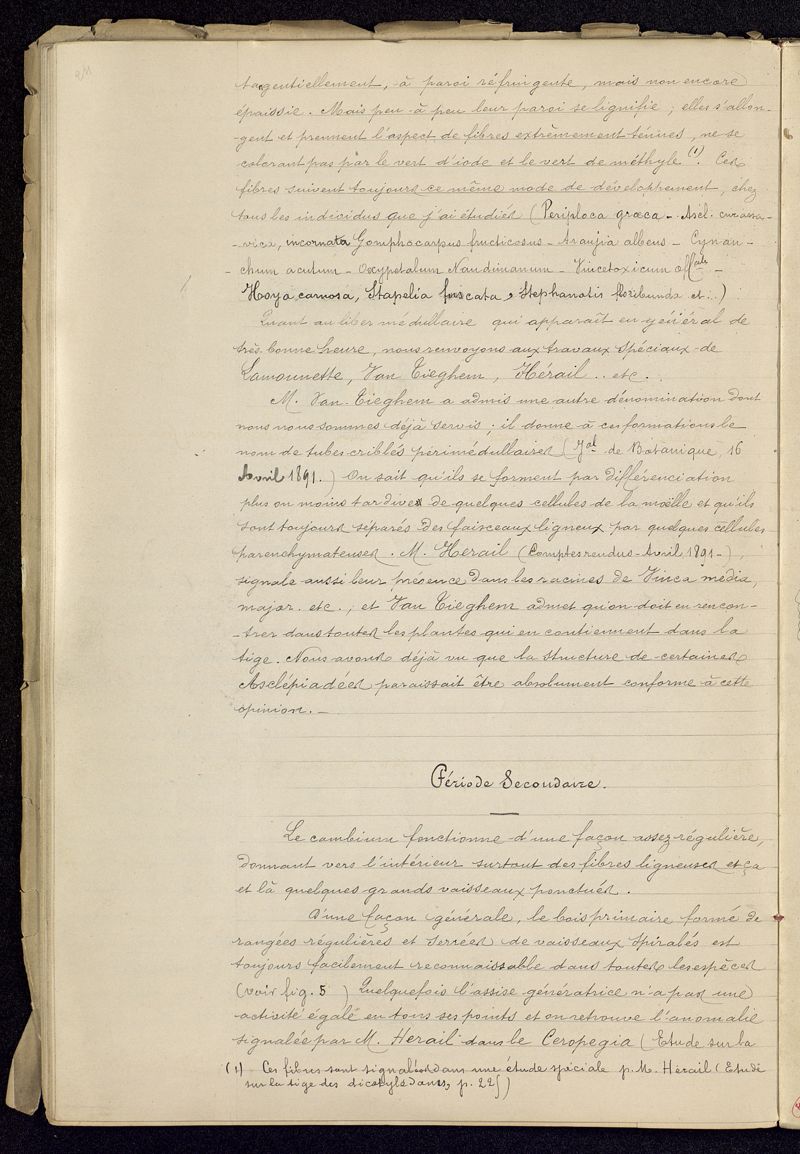 tagentiellement, à paroi réfringente, mais non encore
épaissie. Mais peu à peu leur paroi se lignifie ; elles s'allon-
-gent et prennent l'aspect de fibres extrêmement ténues, ne se
colorant pas par le vert d'iode et le vert de méthyle (1). Ces
fibres suivent toujours ce même mode de développement, chez
tous les individus que j'ai étudiés (Periploca græca - Ascl. curassa-
-vica, incarnata Gomphocarpus fructicosus - Araujia albens - Cynan-
-chum acutum - Oxypetalum Naudinanum - Vincetoxicum offale -
Hoya carnosa, Stapelia fuscata, Stephanotis floribunda et..)
Quant au liber médullaire qui apparaît en général de
très bonne heure, nous renvoyons aux travaux spéciaux de
Lamounette, Van Tieghem, Hérail.. etc.
M. Van-Tieghem a admis une autre dénomination dont
nous nous sommes déjà servis ; il donne à ces formations le
nom de tubes criblés périmédullaires (Jal de Botanique, 16
Avril 1891.) On sait qu'ils se forment par différenciation
plus ou moins tardive de quelques cellules de la moëlle et qu'ils
sont toujours séparés des faisceaux ligneux par quelques cellules
parenchymateuses. M. Hérail (Comptes rendus - Avril 1891-),
signale aussi leur présence dans les racines de Vinca média,
major. etc., et Van Tieghem admet qu'on doit en rencon-
-trer dans toutes les plantes qui en contiennent dans la
tige. Nous avons déjà vu que la structure de certaines
Asclépiadées paraissait être absolument conforme à cette
opinion. _
Période Secondaire.
Le cambium fonctionne d'une façon assez régulière,
donnant vers l'intérieur surtout des fibres ligneuses et ça
et là quelques grands vaisseaux ponctués.
D'une façon générale, le bois primaire formé de
rangées régulières et serrées de vaisseaux spiralés est
toujours facilement reconnaissable dans toutes les espèces
(voir fig. 5 ) Quelquefois l'assise génératrice n'a pas une
activité égale en tous ses points et on retrouve l'anomalie
signalée par M. Herail dans le Ceropegia (Etude sur la
(1) Ces fibres sont signalées dans une étude spéciale p. M. Hérail (Etude
sur la tige des dicotylédones, p. 225)